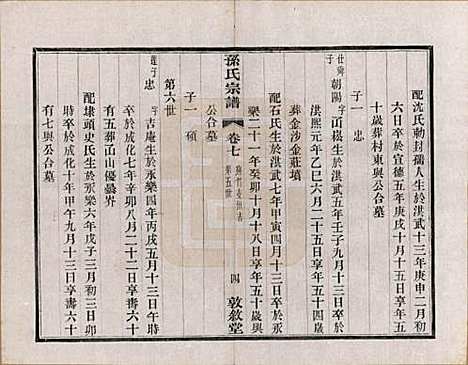 配沈氏勅封孺人生於洪武十三年庚申二月初
六日卒於宣德五年庚戌十二月十三日享年五
十歲葬村東與公合墓
子一 忠
仕舜子
朝陽 字山崧生於洪武五年壬子九月十三日卒於
洪熙元年乙巳六月二十五日享年五十四歲
葬金沙金莊墳
配石氏生於洪武七年甲寅四月十三日卒於永
樂二十一年癸卯十月十八日享年五十歲與
孫氏宗譜 卷七 第五世 四 敦敘堂
公合墓
子一 碩
第六世
忠 字古庵生於永樂四年丙戌五月十三日午時
卒於成化七年辛卯八月二十二日享壽六十
有五葬了山山優曇岕
配埭頭史氏生於永樂六年戊子三月初三日卯
時卒於成化十年甲午九月十三日享壽六十
有七與公合墓